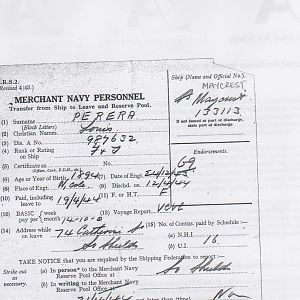 R.S.2.
Revised 4/43.)
MERCHANT NAVY PERSONNEL
Transfer from Ship to Leave and Reserve Pool.
Ship (Name and Official No.)
MAYCREST
133113
If not issued at port of discharge, state port of discharge.
(1) Surname PERERA
(Block Letters)
(2) Christian Names Louis
(3) Dis. A No. 987632
(4) Rank or Rating on Ship F & T
Endorsements.
(5) Certificate No. 69
(6) Age or Year of Birth 1894
(7) Date of Engt.
(8) Place of Engt.
(9) Dischd. on 12/4/44
(10) Paid, including leave to 19/4/44
(11) P. or H.T. E
(12) BASIC pay per week month
(13) Voyage Report VGVG
(14) Address 74
So Shields
(15) No of Contns. paid by Schedule:
(a) N.H.I. 16
(b) U.I.
TAKE NOTICE that you are required by the Shipping Federation to report:
Strike out as necessary.
(a) In person* to the Merchant Navy Reserve Pool Office at So Shields
(b) In writing to the Merchant Navy Reserve Pool Office at